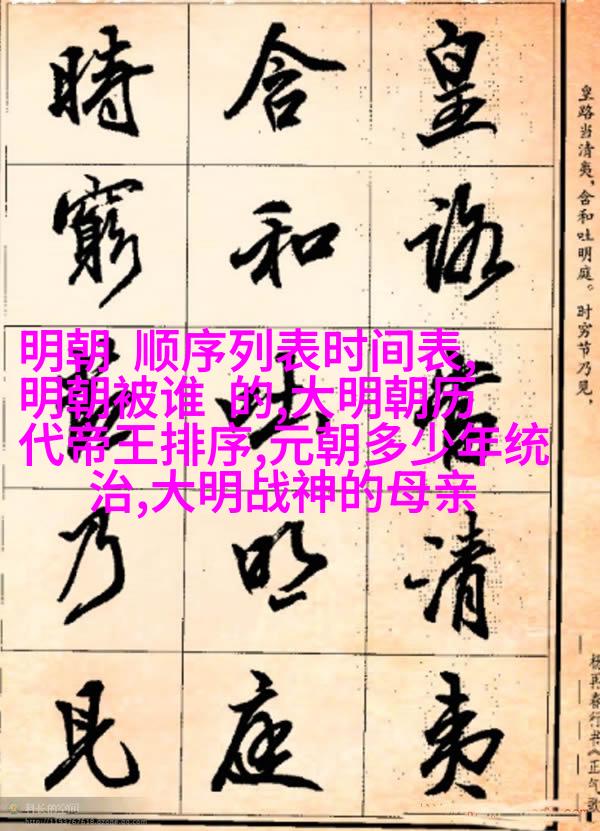 皇路当清夷,含和吐明庭。时穷节乃见,
杨再春行书《正气歌
皇路當清夷
含和吐明庭
時窮節乃見
明朝 顺序列表时间表,
明朝被谁 的,大明朝历
代帝王排序,元朝多少年统
治,大明战神的母亲
科长的空间
http://1193767618.qzone.qq.com